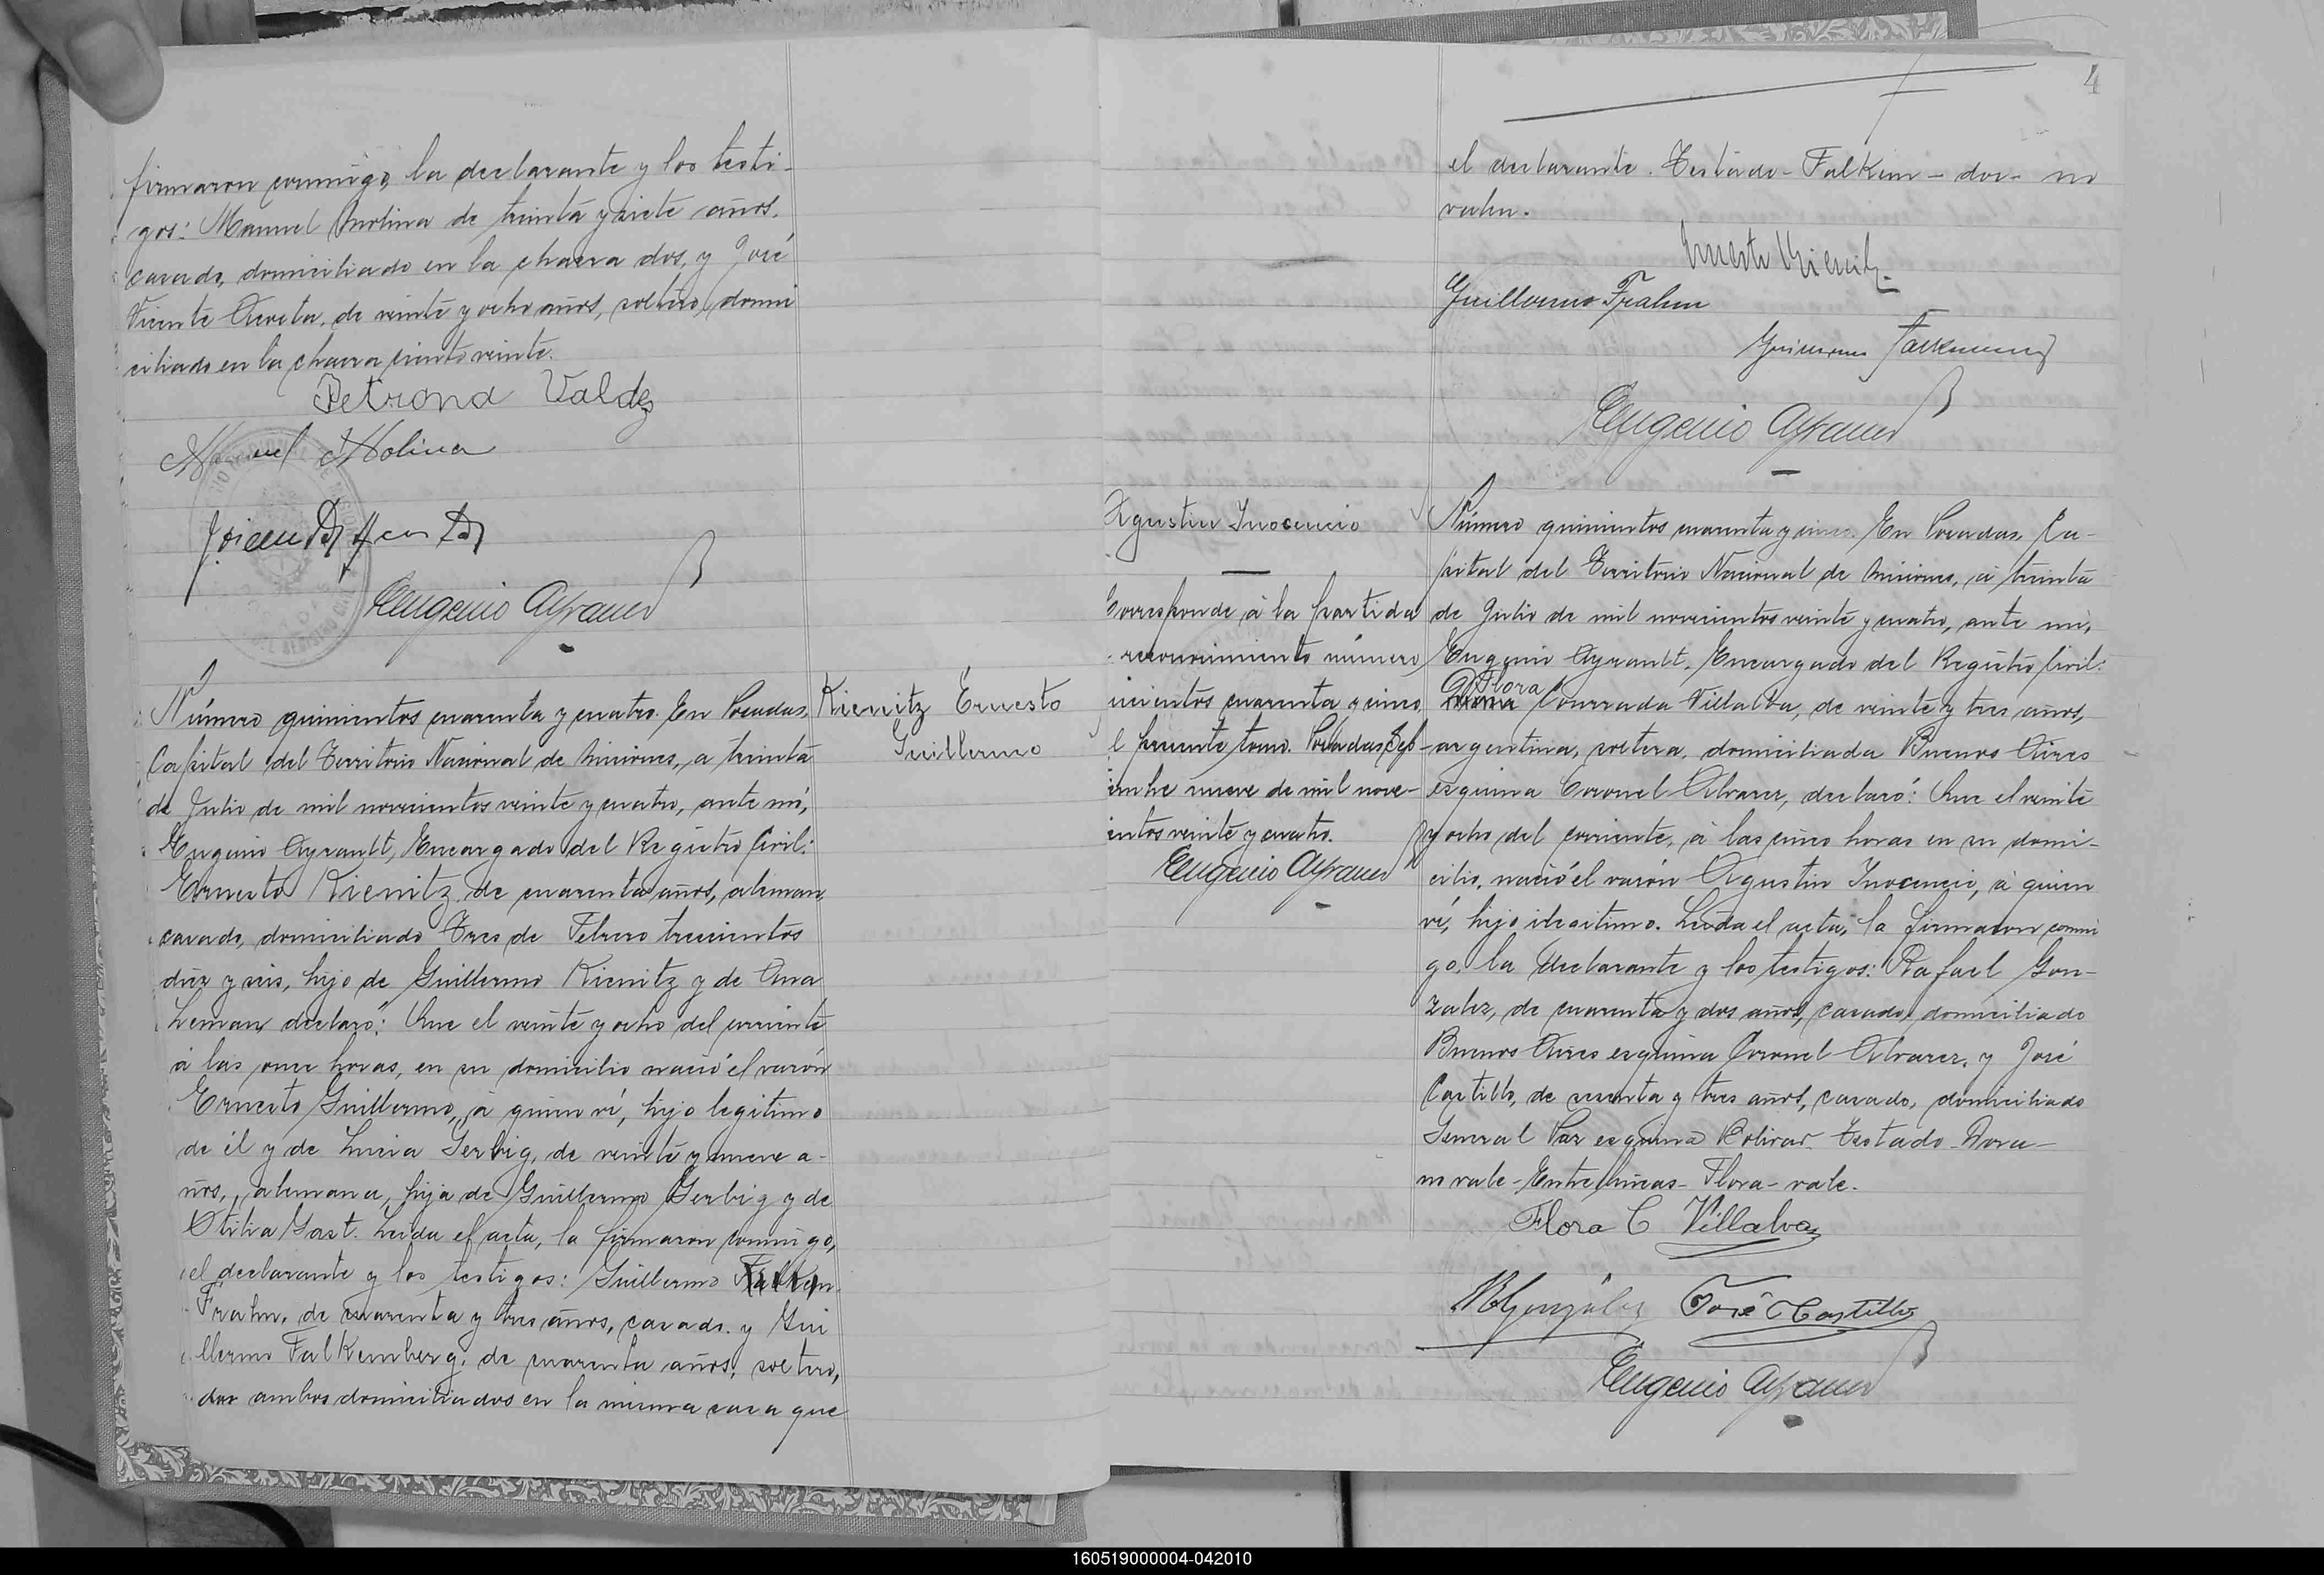 firmaron conmigo, la declarante y los testi-
gos: Manuel Molina de treinta y siete años,
casado, domiciliado en la chacra dos, y José
Vicente Acosta, de veinte y ocho años, soltero, domi
ciliado en la chacra ciento veinte.
Petrona Valdez
Manuel Molina
Eugenio Ayrault
Número quinientos cuarenta y cuatro. En Posadas,
Capital del Territorio Nacional de Misiones, a treinta
de Julio de mil novecientos veinte y cuatro, ante mí,
Eugenio Ayrault, Encargado del Registro Civil:
Ernesto Kienitz, de cuarenta años, aleman,
casado, domiciliado Tres de Febrero trescientos
diez y seis, hijo de Guillermo Kienitz y de Ana
Leman, declaró: Que el veinte y ocho del corriente
á las once horas, en su domicilio nació el varón
Ernesto Guillermo, á quien ví, hijo legitimo
de él y de Lucia Gerbig, de veinte y nueve a-
ños, alemana, hija de Guillermo Gerbig y de
Otilia Gast. Leida el acta, la firmaron conmigo,
el declarante y los testigos: Guillermo Falken
Frahm, de cuarenta y tres años, casado, y Gui
llermo Falkemberg, de cuarenta años, soltero,
dos ambos domiciliados en la misma casa que
Kienitz Ernesto
Guillermo
4
el declarante. Testado - Falkem - dos - no
valen.
Ernesto Kienitz
Guillermo Frahm
Guillermo Falkemberg
Eugenio Ayrault
Agustin Inocencio
Corresponde á la partida
reconocimiento número
inientos cuarenta y cinco,
l presente tomo. Posadas, Set-
iembre nueve de mil nove-
ientos veinte y cuatro.
Eugenio Ayrault
Número quinientos cuarenta y cinco. En Posadas, Ca-
pital del Territorio Nacional de Misiones, á treinta
de Julio de mil novecientos veinte y cuatro, ante mí,
Eugenio Ayrault, Encargado del Registro Civil:
Flora
Dora Conrrada Villalba, de veinte y tres años,
argentina, soltera, domiciliada Buenos Aires
esquina Coronel Alvarez, declaró: Que el veinte
y ocho del corriente, á las cinco horas en su domi-
cilio, nació el varón Agustin Inocencio, á quien
ví, hijo ilegitimo. Leida el acta, la firmaron conmi
go, la declarante y los testigos: Rafael Gon-
zalez, de cuarenta y dos años, casado, domiciliado
Buenos Aires esquina Coronel Alvarez, y José
Castillo, de sesenta y tres años, casado, domiciliado
General Paz esquina Bolivar. Testado - Dora -
no vale - Entre lineas - Flora - vale.
Flora C Villalva
R González José Castillo
Eugenio Ayrault
160519000004-042010